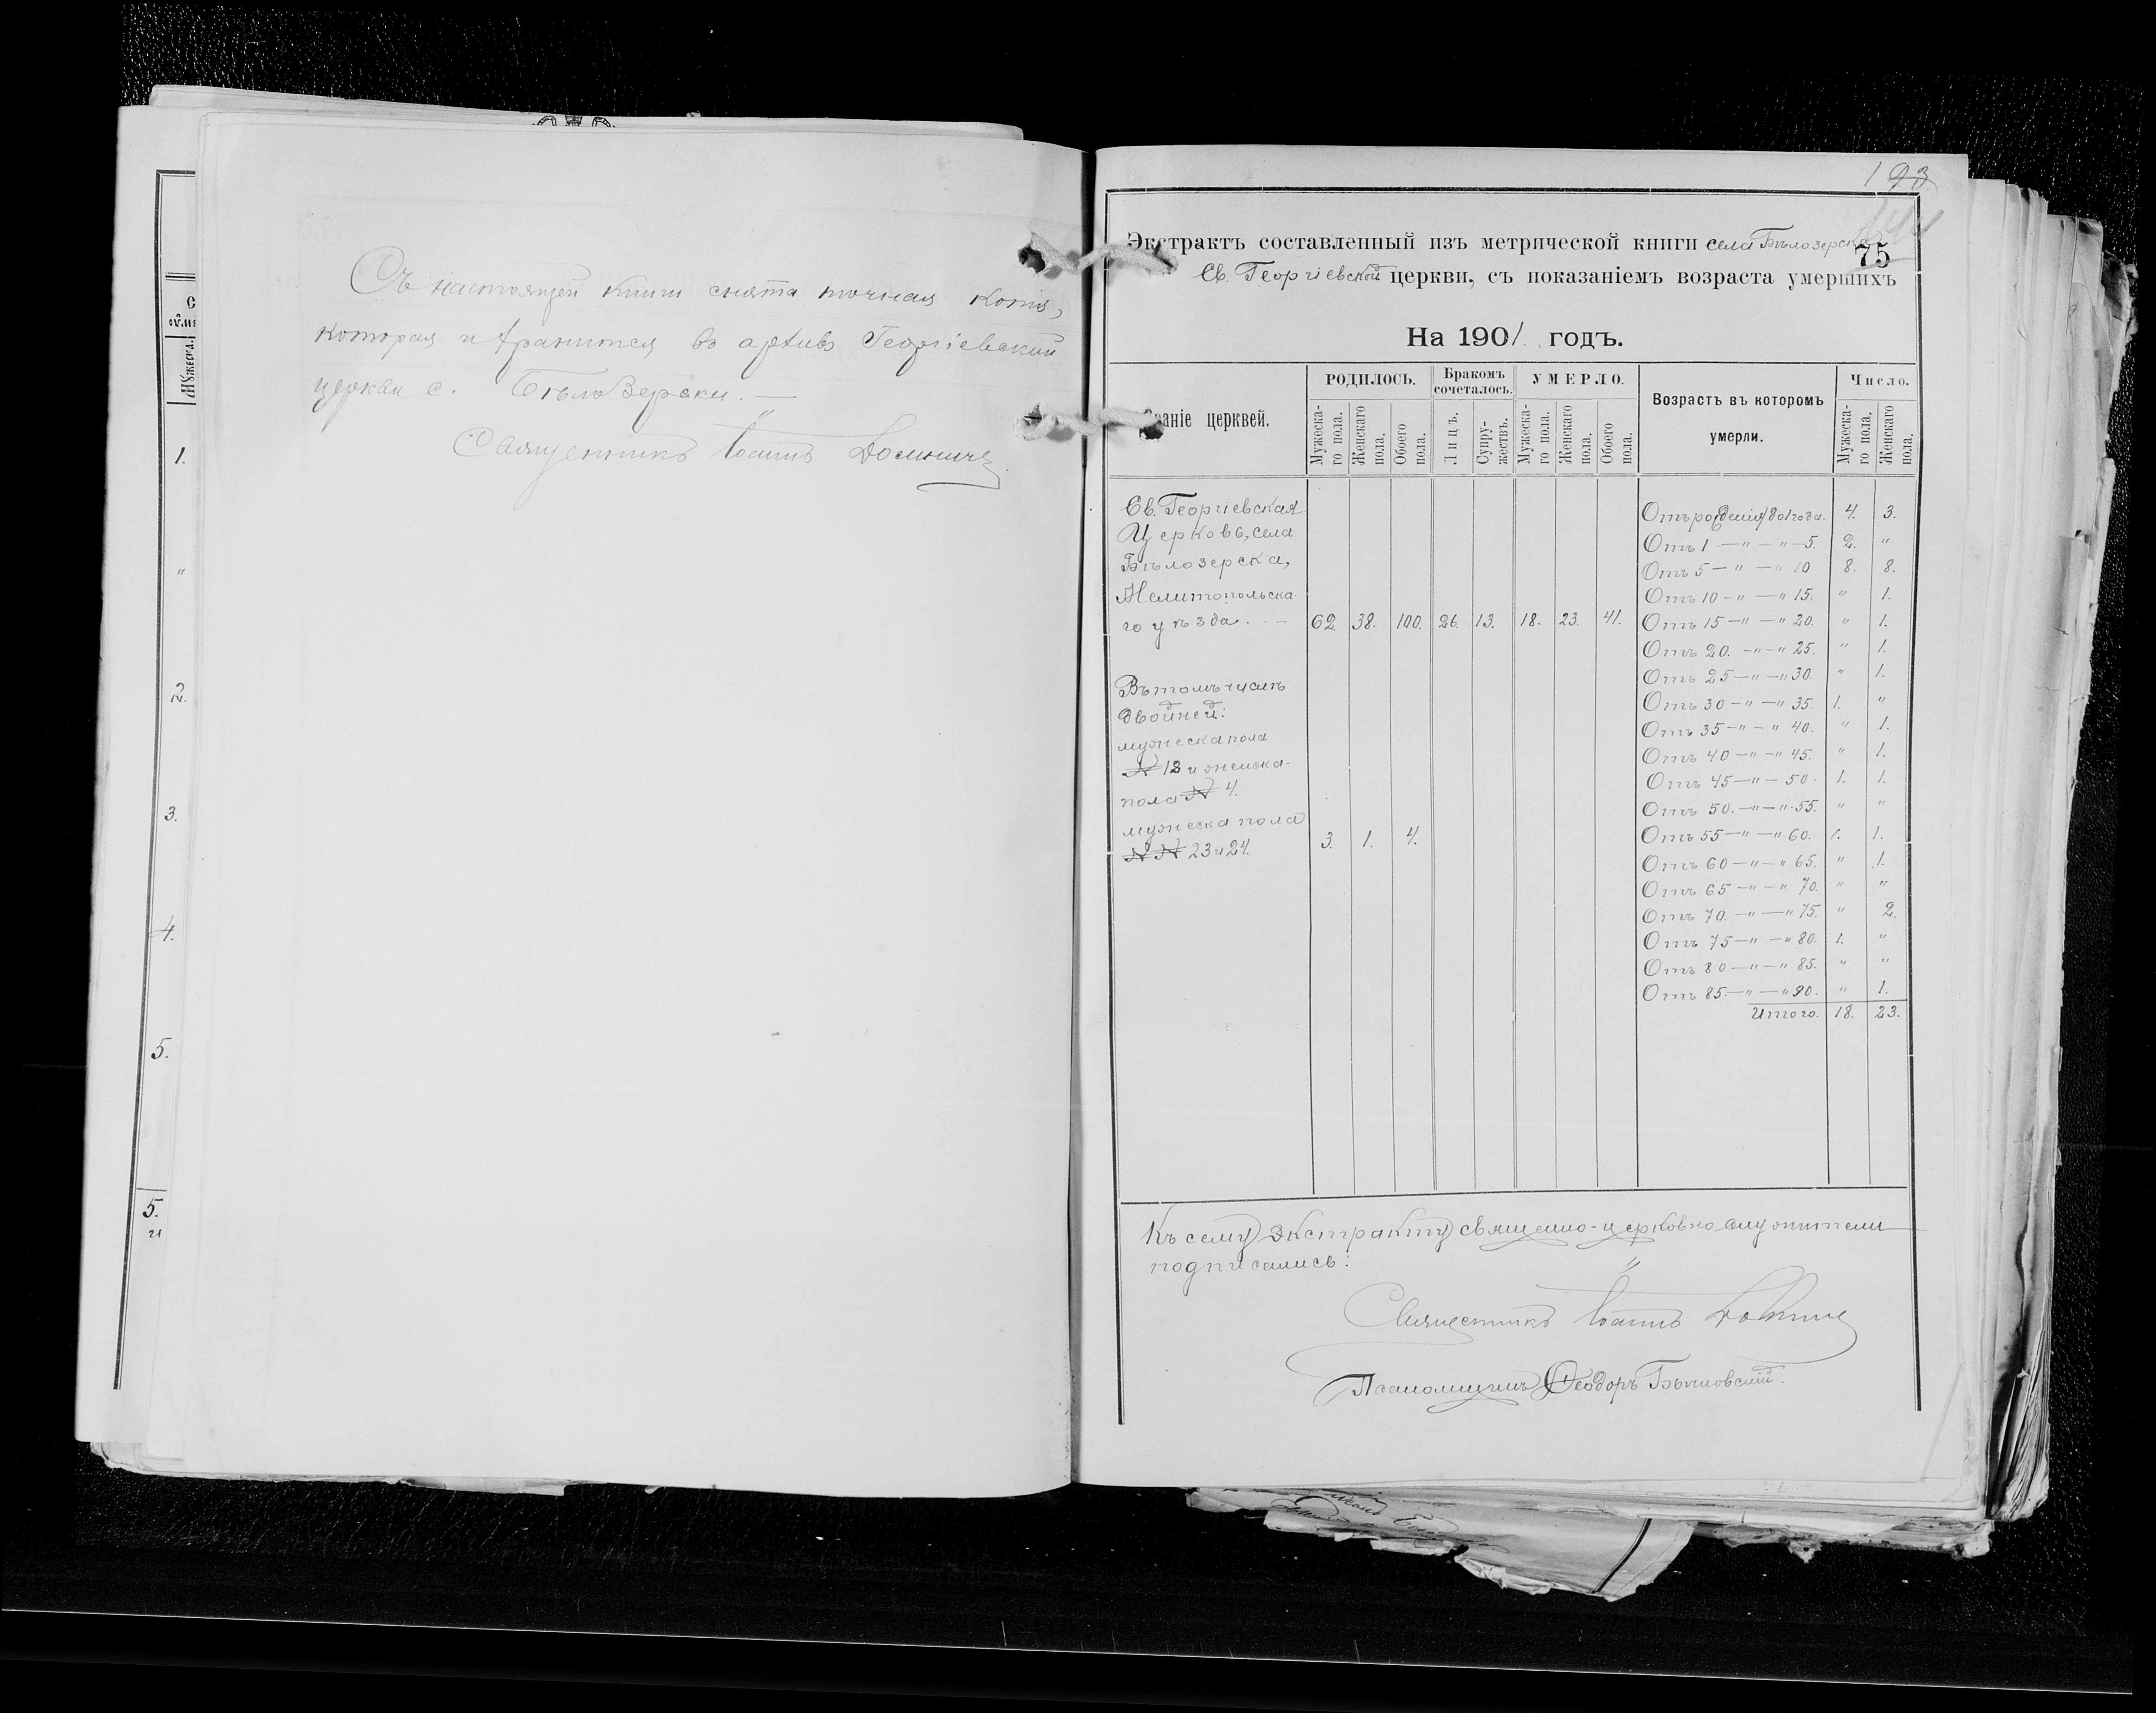 Съ настоящей книги снята точная копія,
которая и хранится въ архивѣ Георгіевской
церкви с. Бѣлозерки. —
Священникъ Іоаннъ
С
Мужеска.
1.
"
2.
3.
4.
5.
5.
193
75
Экстрактъ составленный изъ метрической книги села Бѣлозерска
Св. Георгіевской церкви, съ показаніемъ возраста умершихъ
На 1901 годъ.
званіе церквей.
РОДИЛОСЬ.
Мужеска-го пола.
Женскаго пола.
Обоего пола.
Бракомъ сочеталось.
Лицъ.
Супру-жествъ.
УМЕРЛО.
Мужеска-го пола.
Женскаго пола.
Обоего пола.
Возрастъ въ которомъ умерли.
Число.
Мужеска-го пола.
Женскаго пола.
Св. Георгіевская
Церковь, села
Бѣлозерска,
Мелитопольска-
го уѣзда. 62. 38. 100. 26. 13. 18. 23. 41.
Въ томъ числѣ
двойней:
мужеска пола
№ 13 и женска-
пола № 4.
мужеска пола
№№ 23 и 24. 3. 1. 4.
Отъ рожденія до 1 года. 4. 3.
Отъ 1 — " — " — 5. 2. "
Отъ 5 — " — " 10 8. 8.
Отъ 10 — " — " 15. " 1.
Отъ 15 — " — " 20. " 1.
Отъ 20. — " — " 25. " 1.
Отъ 25 — " — " 30. " 1.
Отъ 30 — " — " 35. 1. "
Отъ 35 — " — " 40. " 1.
Отъ 40 — " — " 45. " 1.
Отъ 45 — " — 50. 1. 1.
Отъ 50. — " — " 55. " "
Отъ 55 — " — " 60. 1. 1.
Отъ 60 — " — " 65. " 1.
Отъ 65 — " — " 70. " "
Отъ 70. — " — " 75. " 2.
Отъ 75 — " — " 80. 1. "
Отъ 80 — " — " 85. " "
Отъ 85. — " — " 90. " 1.
Итого. 18. 23.
Къ сему экстракту священно-церковно служители
подписались:
Священникъ Іоаннъ
Псаломщикъ Ѳеодоръ